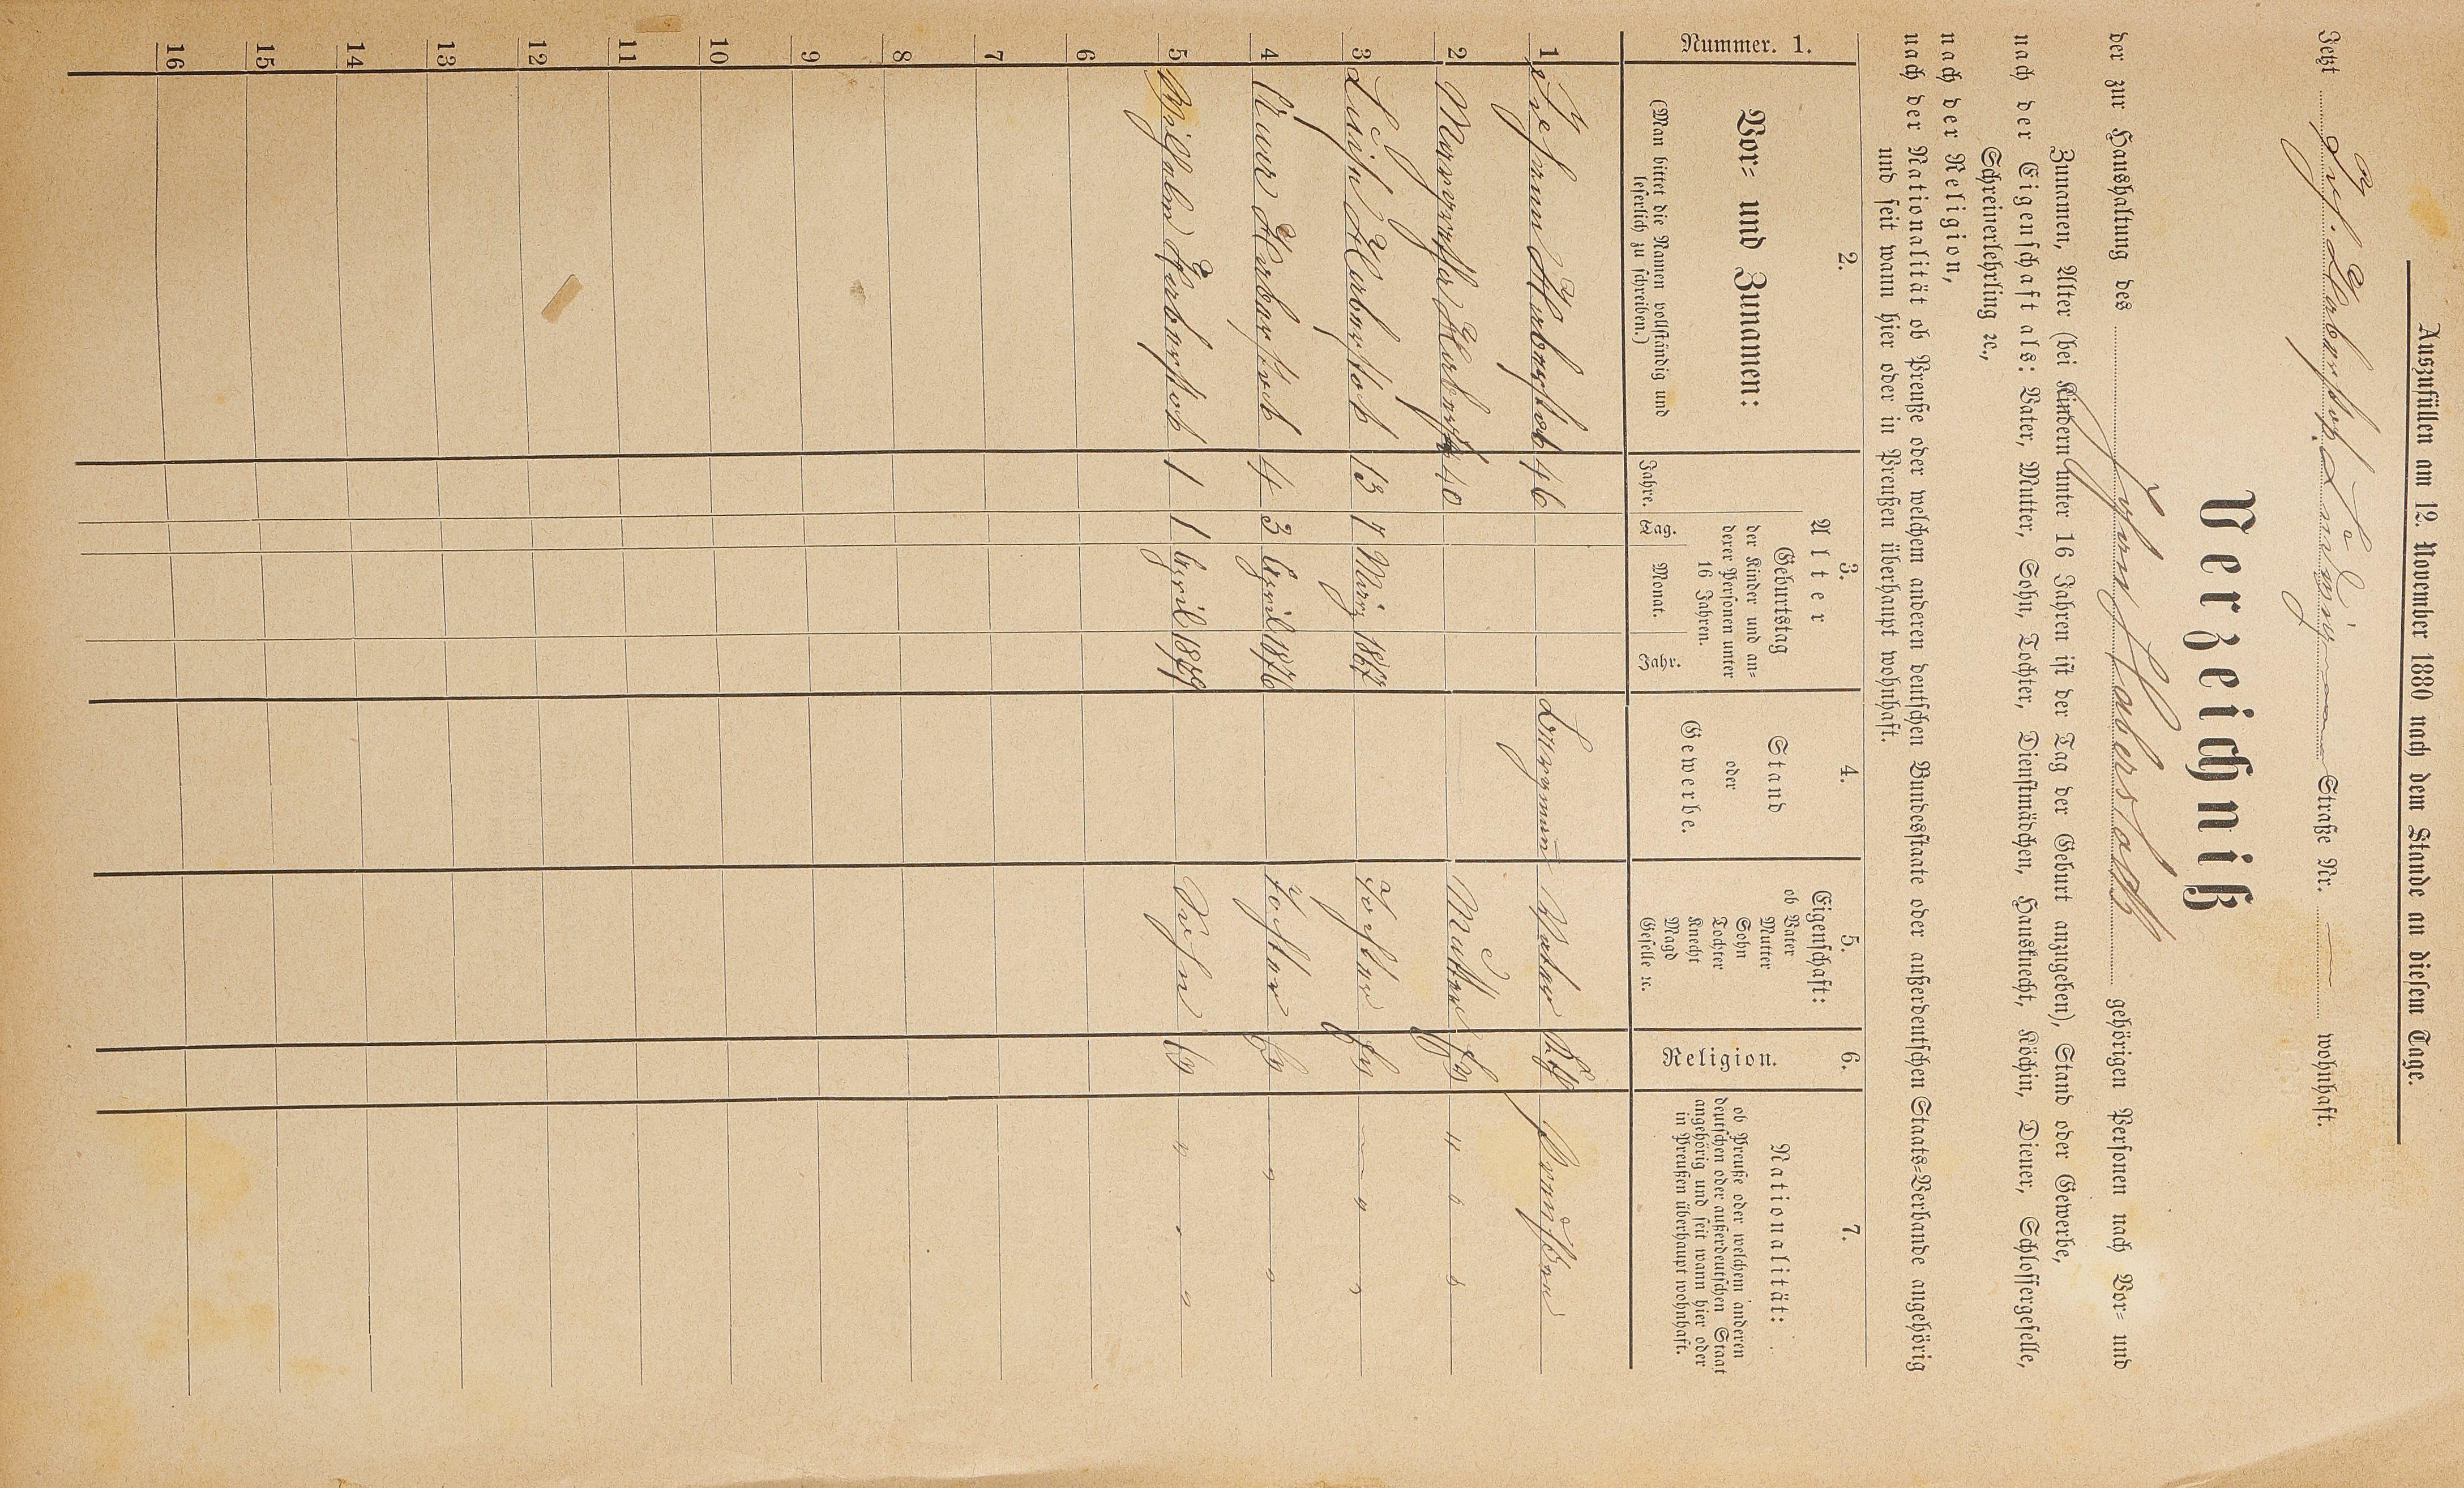 Auszufüllen am 12. November 1880 nach dem Stande an diesem Tage.
Jetzt Straße Nr. — wohnhaft.
Verzeichniß
der zur Haushaltung des Johann Haberstock gehörigen Personen nach Vor= und
Zunamen, Alter (bei Kindern unter 16 Jahren ist der Tag der Geburt anzugeben), Stand oder Gewerbe,
nach der Eigenschaft als: Vater, Mutter, Sohn, Tochter, Dienstmädchen, Hausknecht, Köchin, Diener, Schlossergeselle,
Schreinerlehrling ꝛc.,
nach der Religion,
nach der Nationalität ob Preuße oder welchem anderen deutschen Bundesstaate oder außerdeutschen Staats=Verbande angehörig
und seit wann hier oder in Preußen überhaupt wohnhaft.
Nummer. 1.
2.
Vor= und Zunamen:
(Man bittet die Namen vollständig und
leserlich zu schreiben.)
3.
Alter
Jahre.
Geburtstag
der Kinder und an=
derer Personen unter
16 Jahren.
Tag. Monat. Jahr.
4.
Stand
oder
Gewerbe.
5.
Eigenschaft:
ob Vater
Mutter
Sohn
Tochter
Knecht
Magd
Geselle ꝛc.
6.
Religion.
7.
Nationalität:
ob Preuße oder welchem anderen
deutschen oder außerdeutschen Staat
angehörig und seit wann hier oder
in Preußen überhaupt wohnhaft.
1 Johann Haberstock 46 Bergmann Vater Preußen
2 Margaretha Haberstock 40 Mutter Ev " " "
3 Luise Haberstock 13 7 März 1867 Tochter Ev " "
4 Anna Haberstock 4 3 April 1876 Tochter Ev " "
5 Wilhelm Haberstock 1 1 April 1879 Sohn Ev " " "
6
7
8
9
10
11
12
13
14
15
16